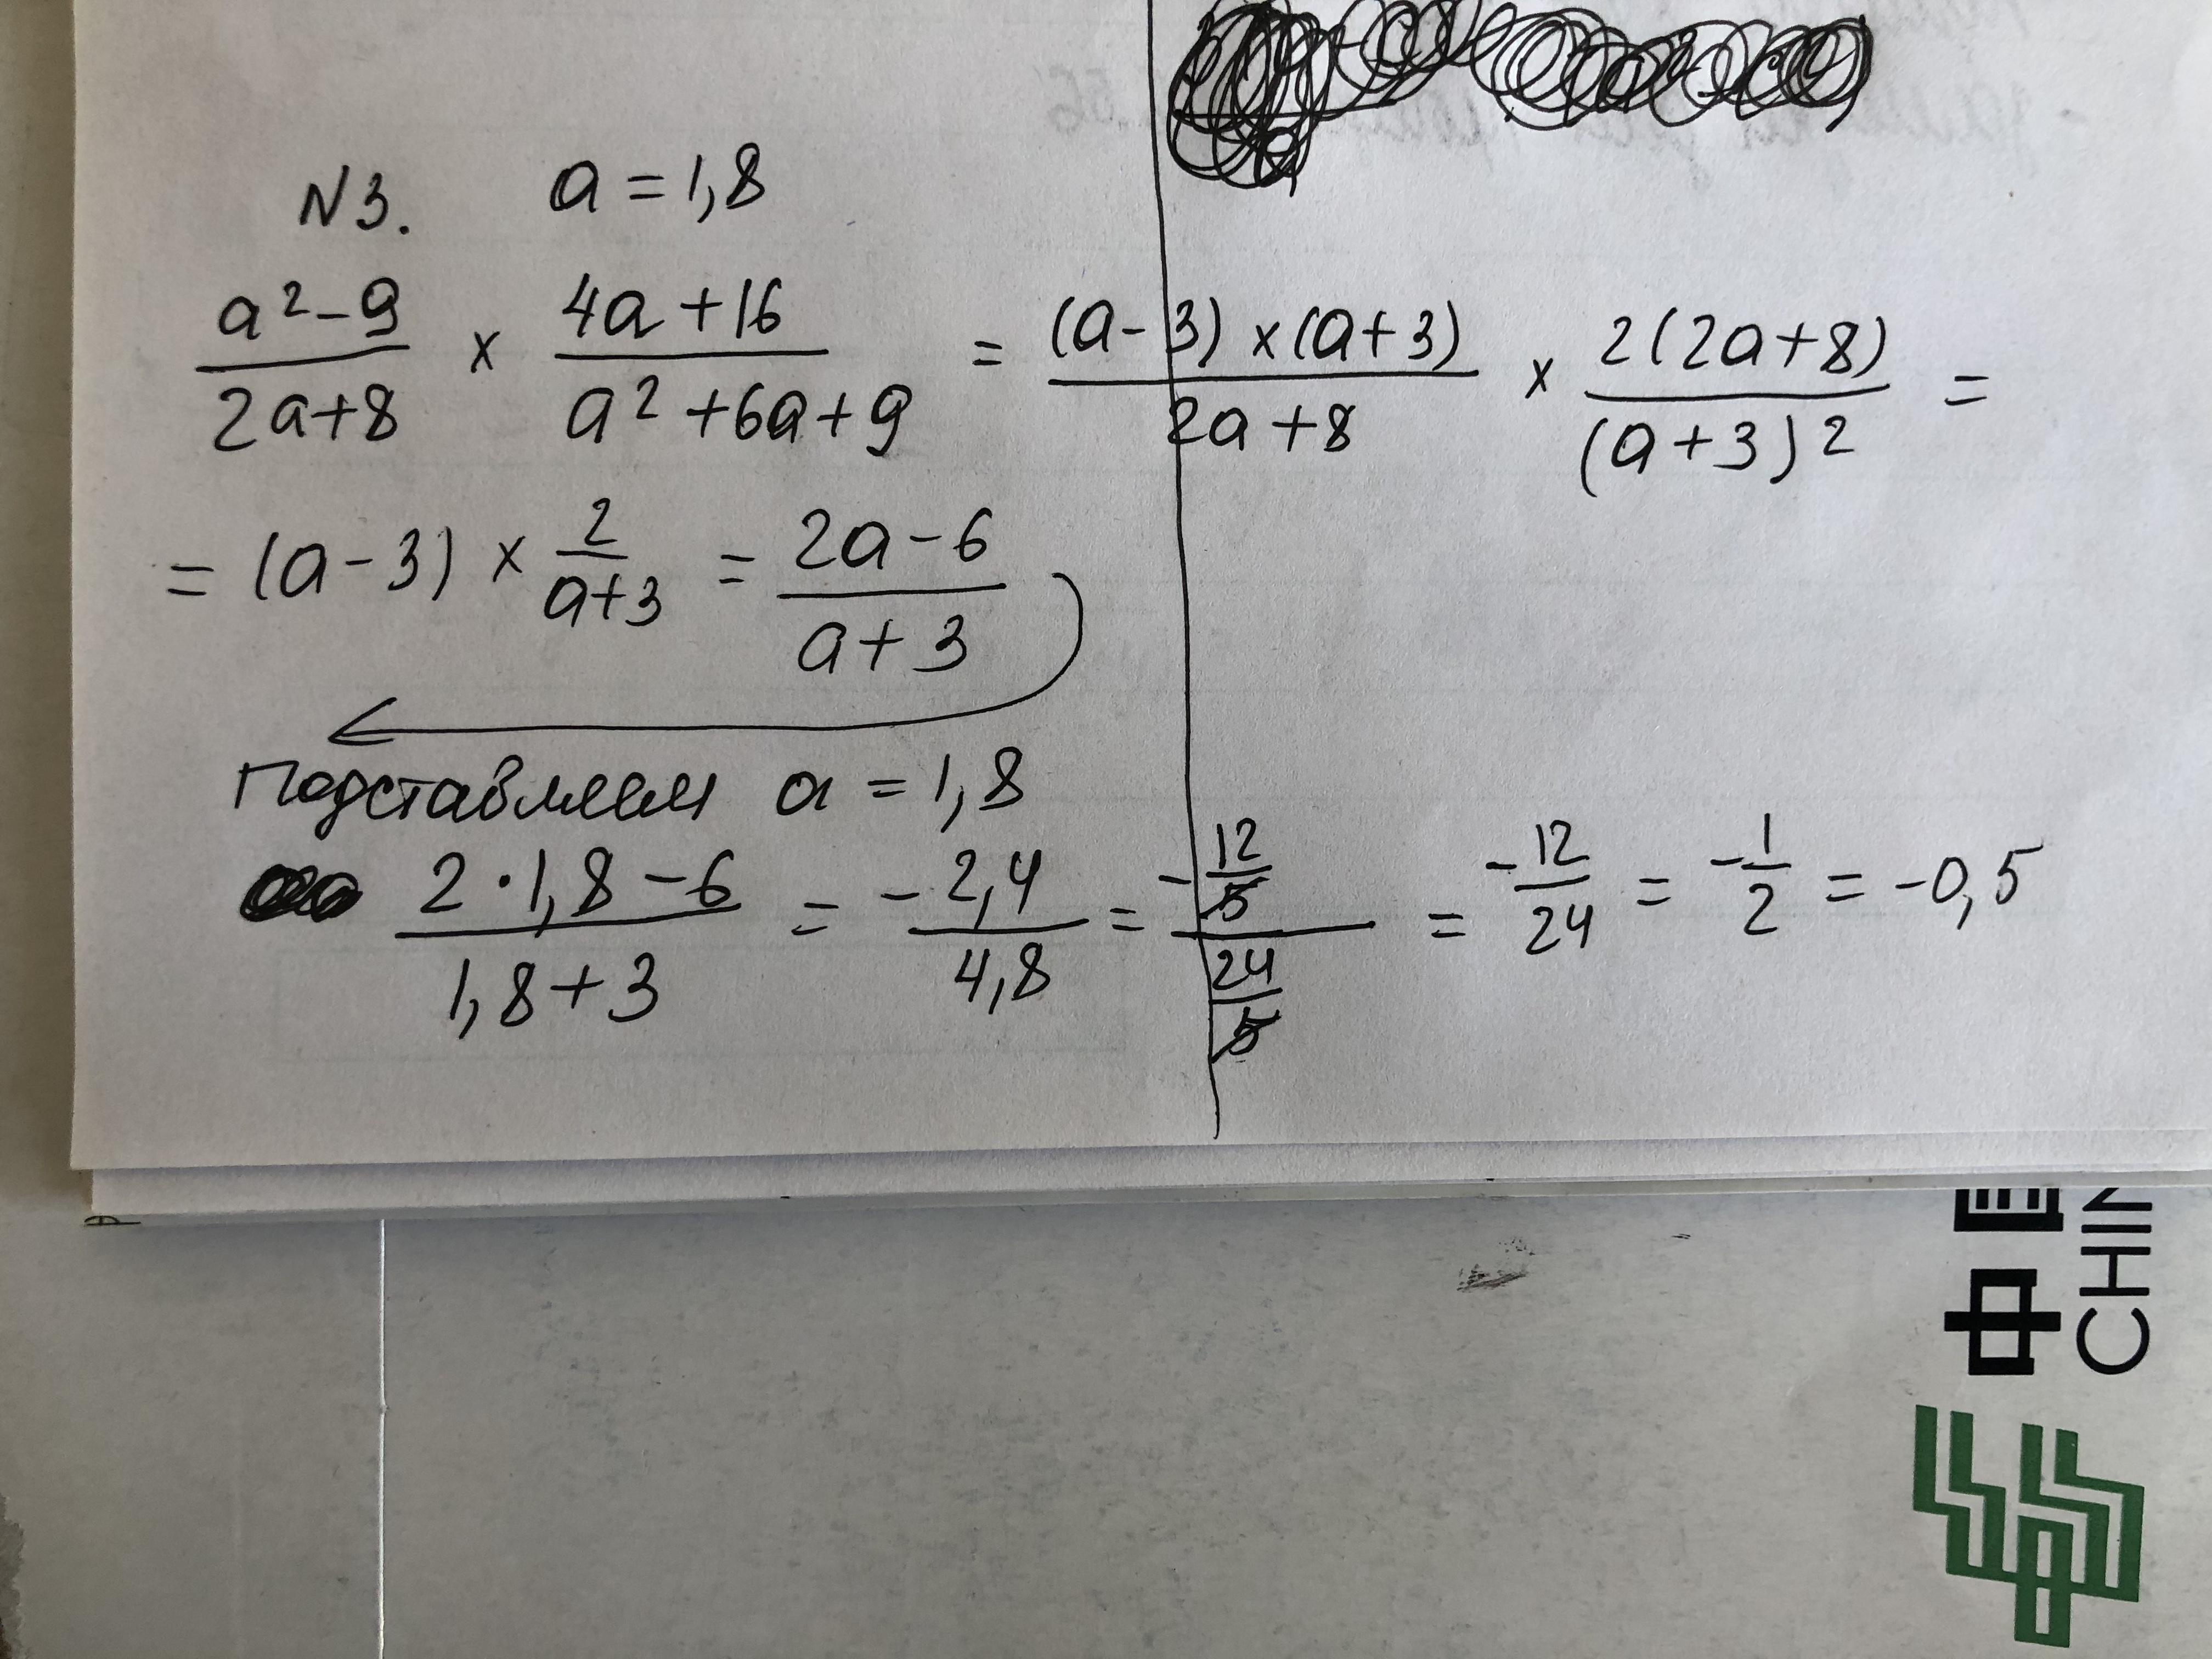 N3. a = 1,8
a² - 9 / 2a + 8 × 4a + 16 / a² + 6a + 9 = (a - 3) × (a + 3) / 2a + 8 × 2(2a + 8) / (a + 3)² =
= (a - 3) × 2 / a + 3 = 2a - 6 / a + 3
Подставляем a = 1,8
2 · 1,8 - 6 / 1,8 + 3 = - 2,4 / 4,8 = - 12/5 / 24/5 = - 12/24 = - 1/2 = -0,5
中
CHIN